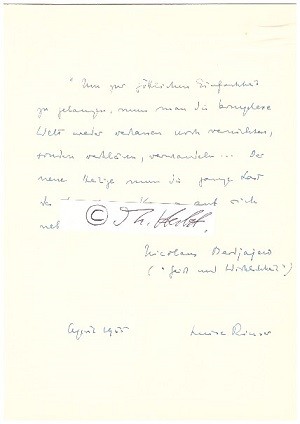 "Um zur göttlichen Einfachheit
zu gelangen, muss man die komplexe
Welt weder verlassen noch vernichten,
sondern verklären, verwandeln... Der
neue Heilige muss die ganze Last
der auf sich
neh
© Th. Herbst.
Nicolaus Berdjajew
("Geist und Wirklichkeit")
August 1955
Luise Rinser